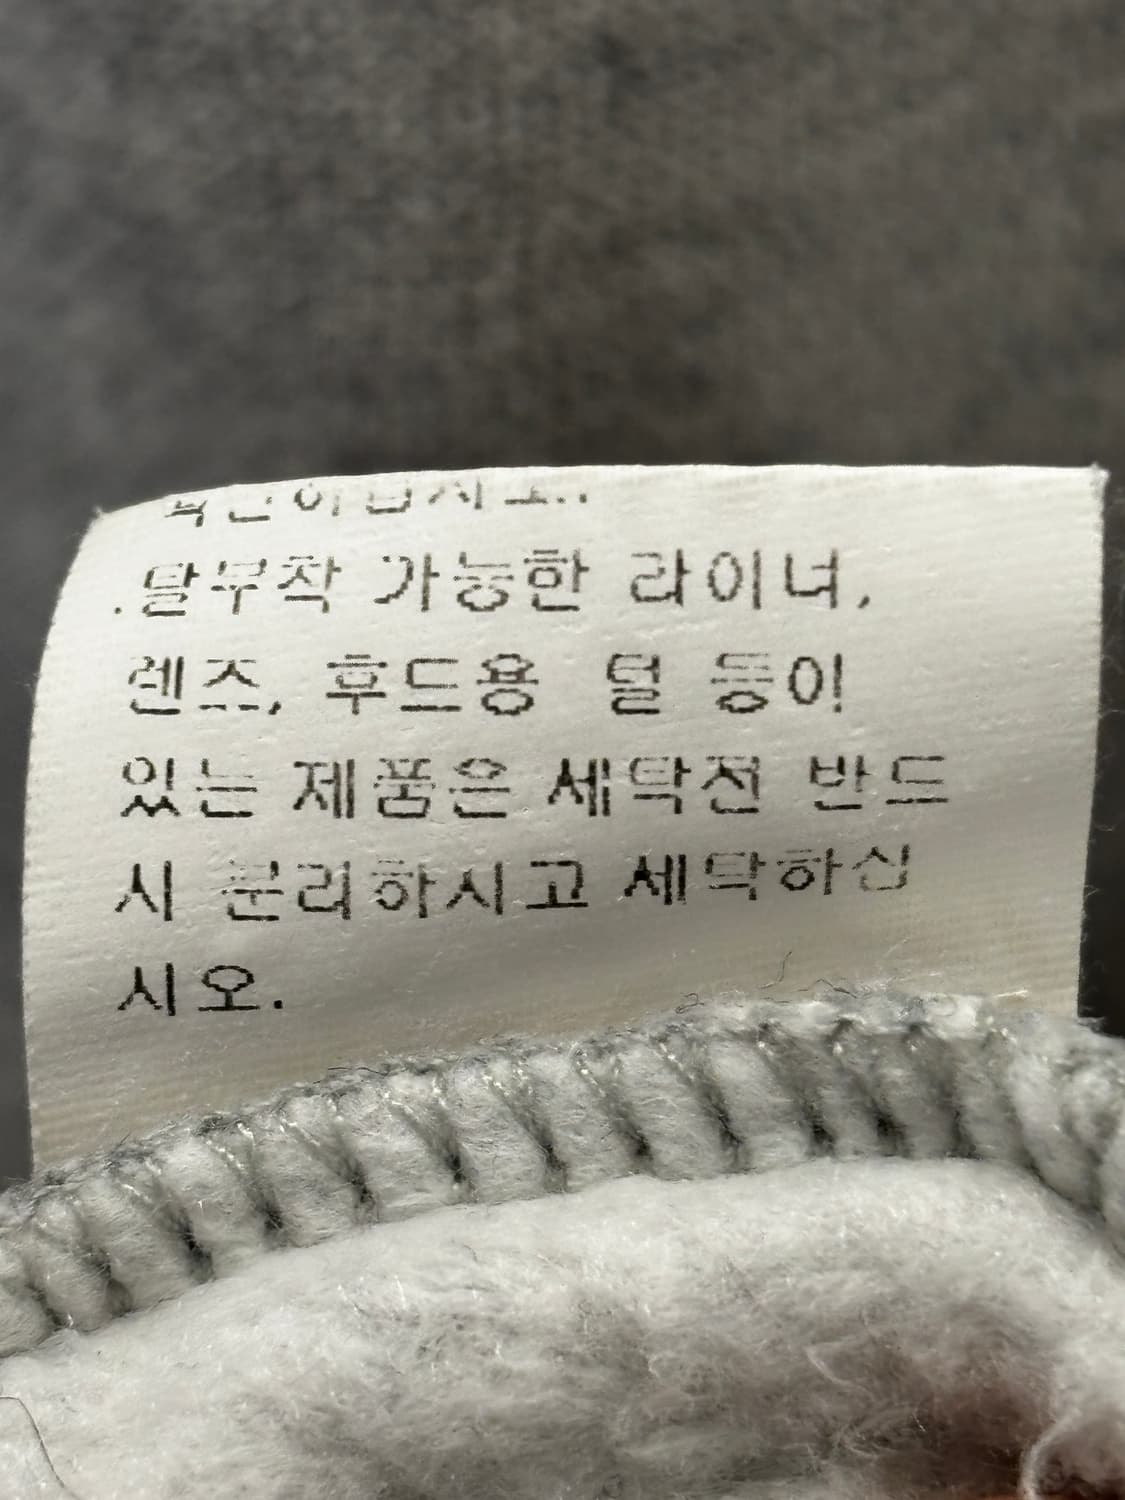 .탈부착 가능한 라이너,
렌즈, 후드용 털 등이
있는 제품은 세탁전 반드
시 분리하시고 세탁하십
시오.